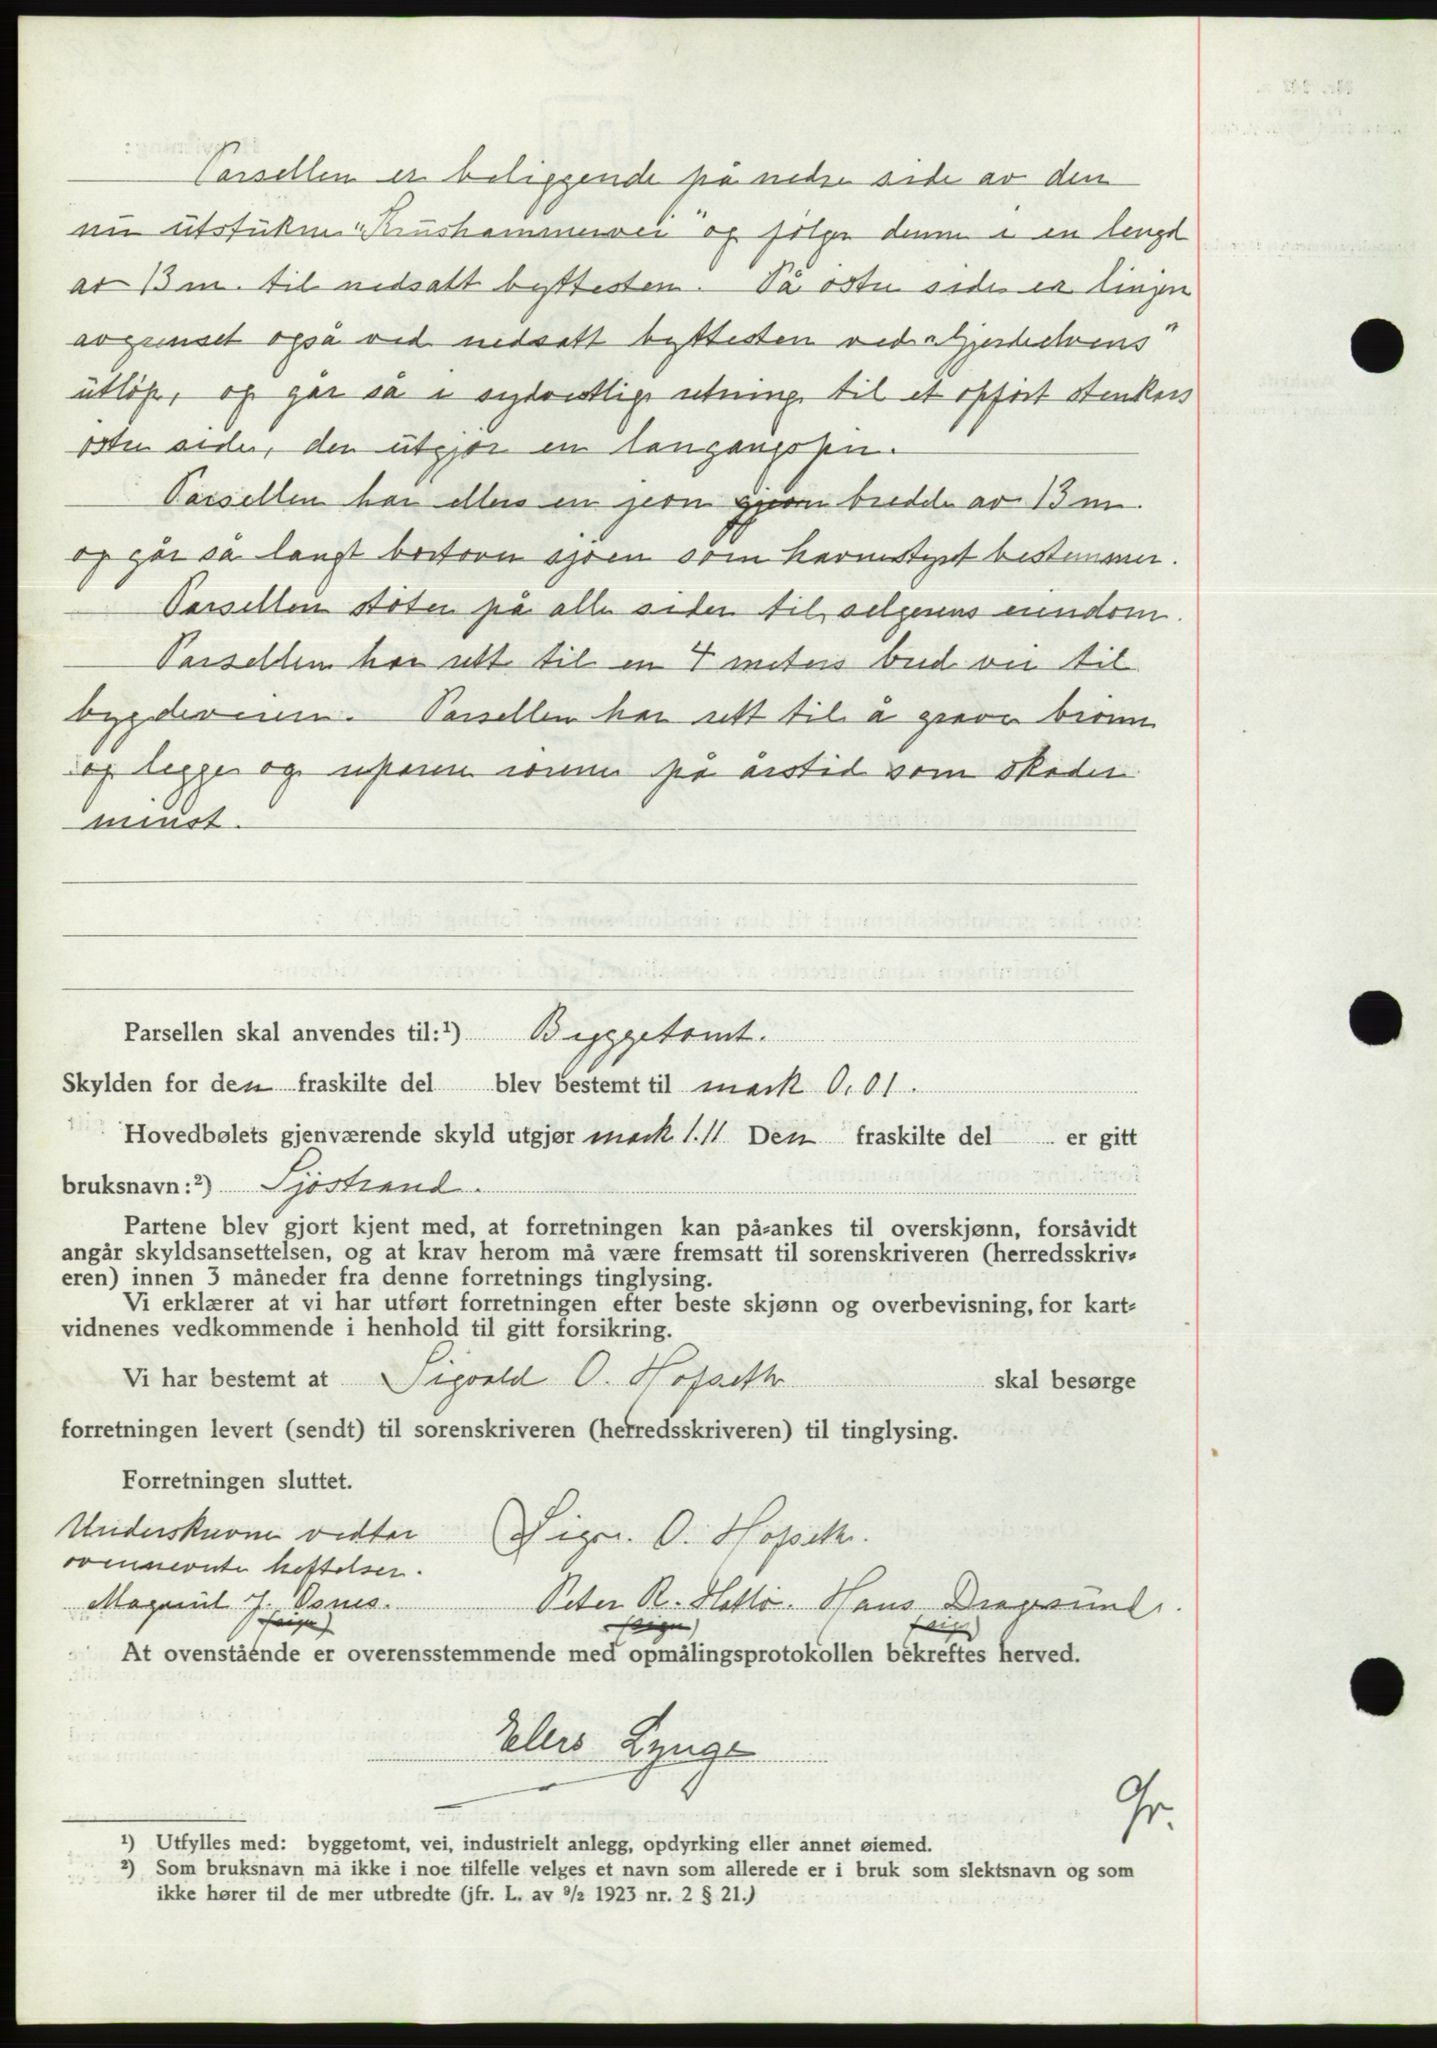 Parsellen er beliggende på nedre side av den
nu utstukne "Krushammervei" og følger denne i en lengd
av 13 m. til nedsatt byttesten. På östre side er linjen
avgrenset også ved nedsatt byttesten ved "Gjerdeelvens"
utlöp, og går så i sydvestlig retning til et opfört stenkars
östre side, der utgjör en langangspir.
Parsellen har ellers en jevn bredde av 13 m.
og går så langt bortover sjöen som havnestyret bestemmer.
Parsellen stöter på alle sider til selgerens eiendom.
Parsellen har rett til en 4 meters bred vei til
bygdeveien. Parsellen har rett til å grave brönn
og legge og reparere rörene på årstid som skader
minst.
Parsellen skal anvendes til:¹) Byggetomt.
Skylden for den fraskilte del blev bestemt til mark 0,01.
Hovedbølets gjenværende skyld utgjør mark 1.11 Den fraskilte del er gitt
bruksnavn:²) Sjöstrand.
Partene blev gjort kjent med, at forretningen kan på-ankes til overskjønn, forsåvidt
angår skyldsansettelsen, og at krav herom må være fremsatt til sorenskriveren (herredsskriv-
eren) innen 3 måneder fra denne forretnings tinglysing.
Vi erklærer at vi har utført forretningen efter beste skjønn og overbevisning, for kart-
vidnenes vedkommende i henhold til gitt forsikring.
Vi har bestemt at Sigvald O. Hofseth skal besørge
forretningen levert (sendt) til sorenskriveren (herredsskriveren) til tinglysing.
Forretningen sluttet.
Underskrevne vedtar Sigv. O. Hofseth.
ovennevnte heftelser.
Magnul J. Osnes. Peter R. Hatlö. Hans Dragesund.
(sign) (sign) (sign)
At ovenstående er overensstemmende med opmålingsprotokollen bekreftes herved.
Elers Lynge
Gr.
¹) Utfylles med: byggetomt, vei, industrielt anlegg, opdyrking eller annet øiemed.
²) Som bruksnavn må ikke i noe tilfelle velges et navn som allerede er i bruk som slektsnavn og som
ikke hører til de mer utbredte (jfr. L. av ⁹/₂ 1923 nr. 2 § 21.)